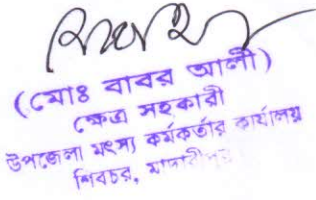 (মোঃ বাবর আলী)
ক্ষেত্র সহকারী
উপজেলা মৎস্য কর্মকর্তার কার্যালয়
শিবচর, মাদারীপুর